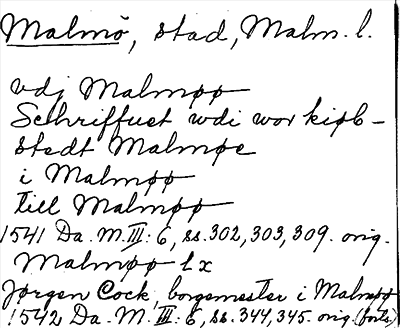 Malmö, stad, Malm. l.
vdj Malmøø
Schriffuet wdi wor kiøb-
stedt Malmøe
i Malmøø
till Malmøø
1541 Da. M. III: 6, ss. 302, 303, 309. orig.
Malmøø lx
Jørgen Cock, borgemester i Malmøø
1542 Da. M. III: 6, ss. 344, 345. orig. (forts.)